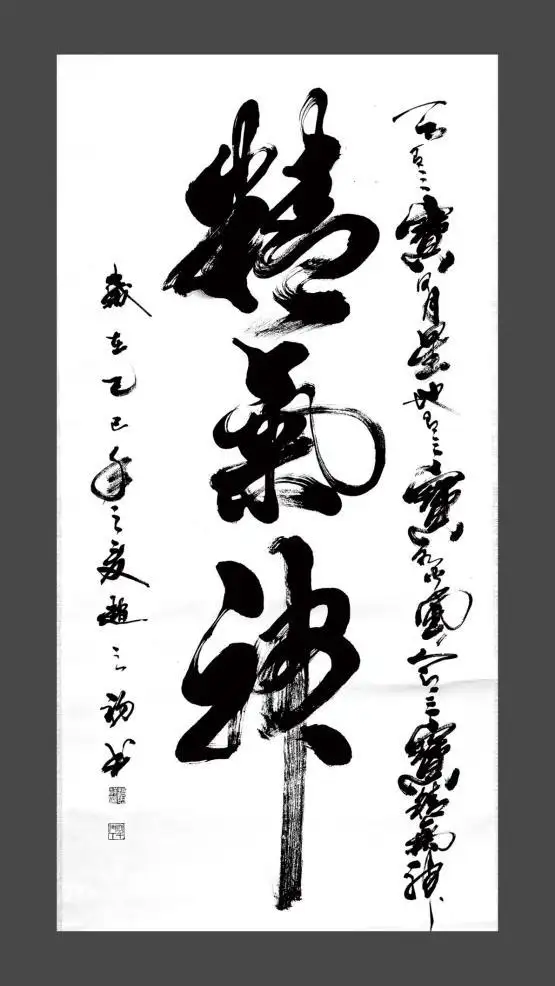 天有三寶日月星地有三寶水火風人有三寶精氣神
精氣神
歲在乙巳年之夏趙初書